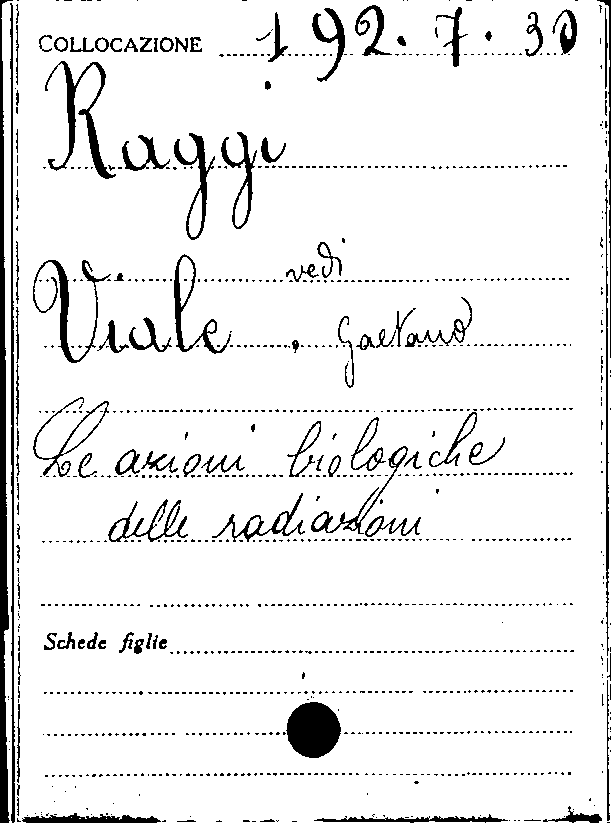 COLLOCAZIONE 192.7.30
Raggi
vedi
Viale, Gaetano
Le azioni biologiche
delle radiazioni
Schede figlie